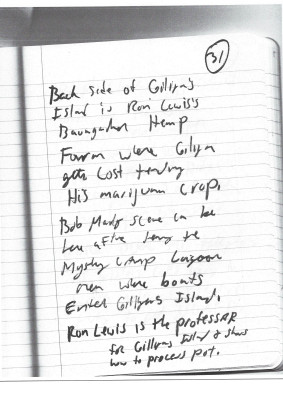 31
Back side of Gilligan's
Island is Ron Lewis's
Hemp
Farm where Gilligan
gets Lost tending
His marijuana Crop.
Bob Marley scene can be
here after being the
Mystery Lagoon
area where boats
Enter Gilligans Island.
Ron Lewis is the professor
for Gilligans Island & shows
how to process pot.